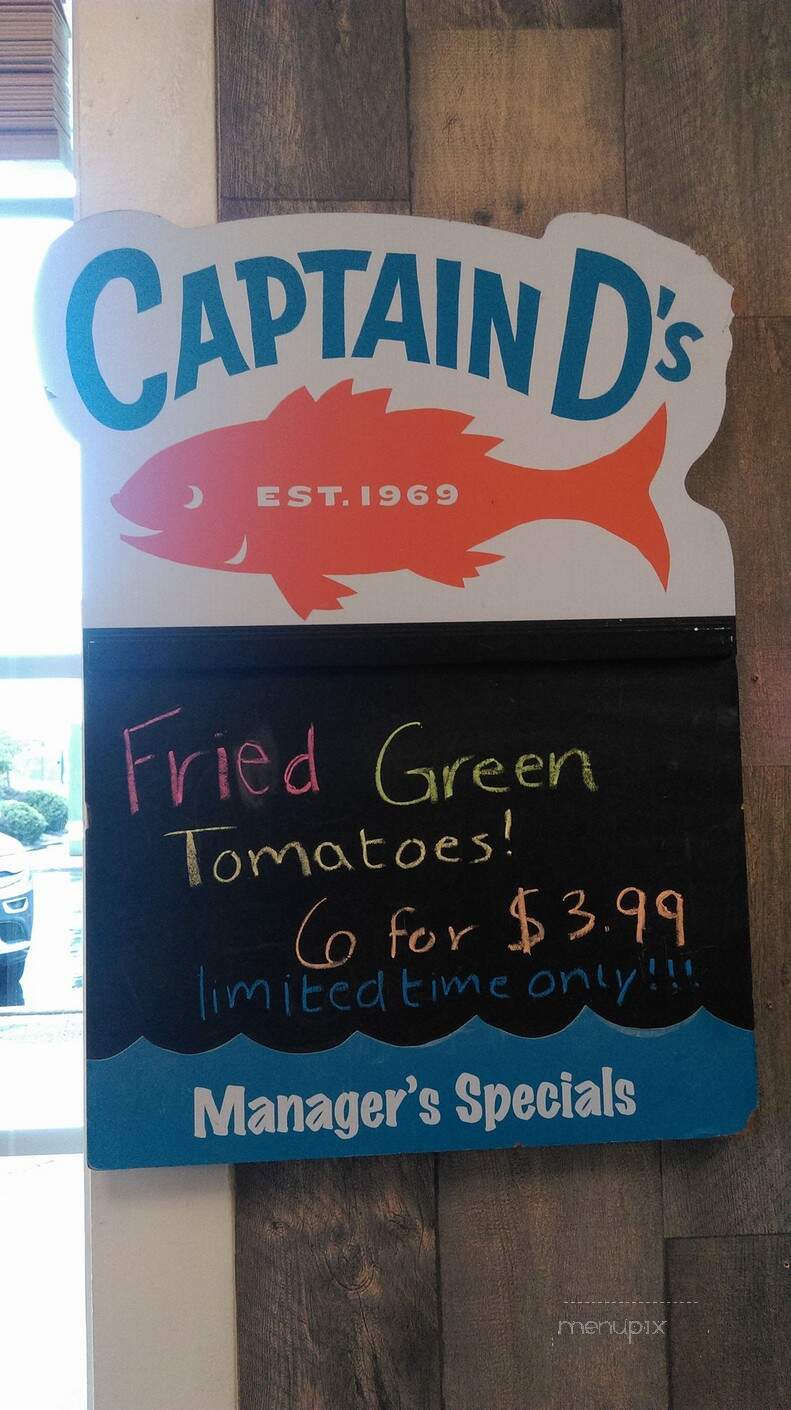 CAPTAIN D's
EST. 1969
Fried Green
Tomatoes!
6 for $3.99
limited time only!!!
Manager's Specials
menupix